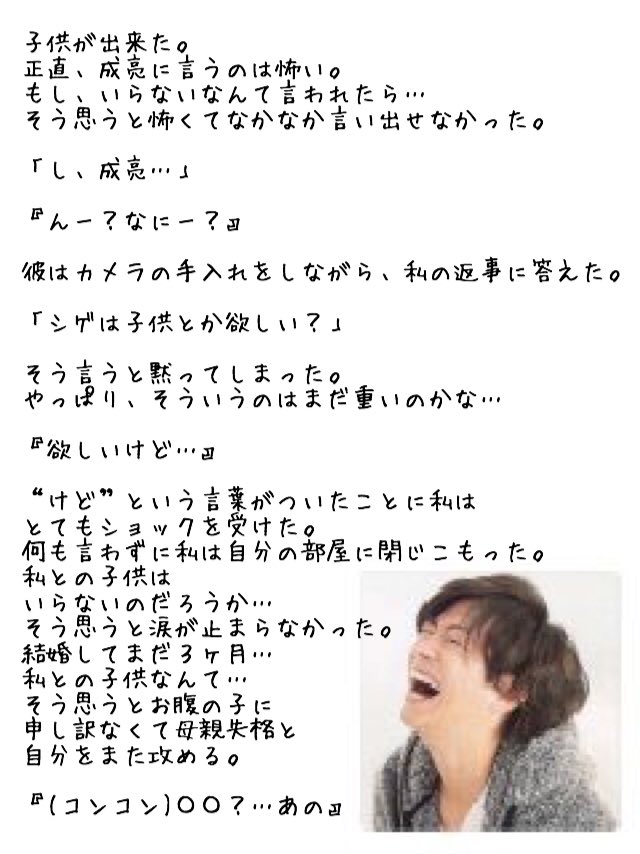 子供が出来た。
正直、成亮に言うのは怖い。
もし、いらないなんて言われたら…
そう思うと怖くてなかなか言い出せなかった。
「し、成亮…」
『んー?なにー?』
彼はカメラの手入れをしながら、私の返事に答えた。
「シゲは子供とか欲しい?」
そう言うと黙ってしまった。
やっぱり、そういうのはまだ重いのかな…
『欲しいけど…』
“けど”という言葉がついたことに私は
とてもショックを受けた。
何も言わずに私は自分の部屋に閉じこもった。
私との子供は
いらないのだろうか…
そう思うと涙が止まらなかった。
結婚してまだ3ヶ月…
私との子供なんて…
そう思うとお腹の子に
申し訳なくて母親失格と
自分をまた攻める。
『(コンコン)〇〇?…あの』